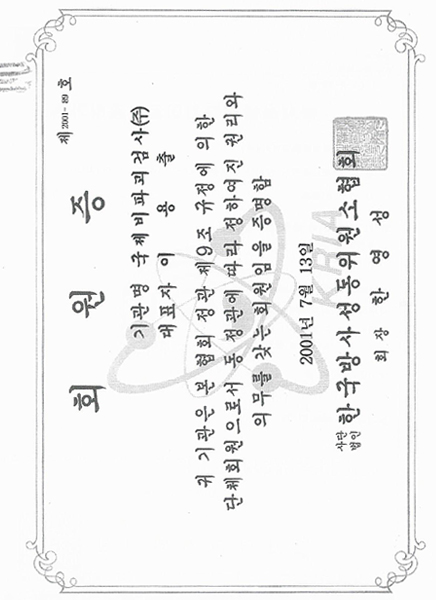 제 2001-89 호
회 원 증
기관명 국제비파괴검사(주)
대표자 이 용 출
귀 기관은 본 협회 정관 제9조 규정에 의한
단체회원으로서 동 정관에 따라 정하여진 권리와
의무를 갖는 회원임을 증명함
2001년 7월 13일
사단
법인 한국방사성동위원소협회
회 장 한 영 성
KRIA